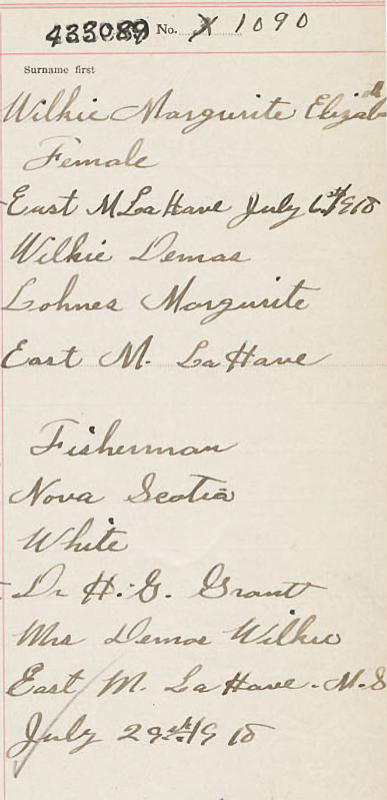 433089 No. X 1090
Surname first
Wilkie Margurite Elizabeth
Female
East M LaHave July 6th 1918
Wilkie Demas
Lohnes Margurite
East M. LaHave
Fisherman
Nova Scotia
White
Dr H. G. Grant
Mrs Demas Wilkie
East M. LaHave. N.S
July 29th 1918